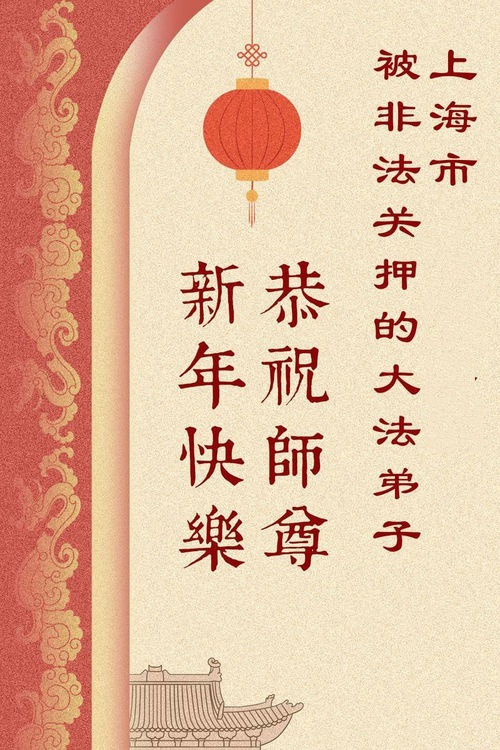 上海市
被非法关押的大法弟子
恭祝師尊
新年快樂